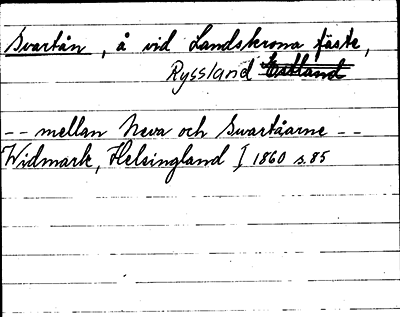 Svartån, å vid Landskrona fäste,
Ryssland Estland
-- mellan Neva och Svartåarne --
Widmark, Helsingland I 1860 s. 85